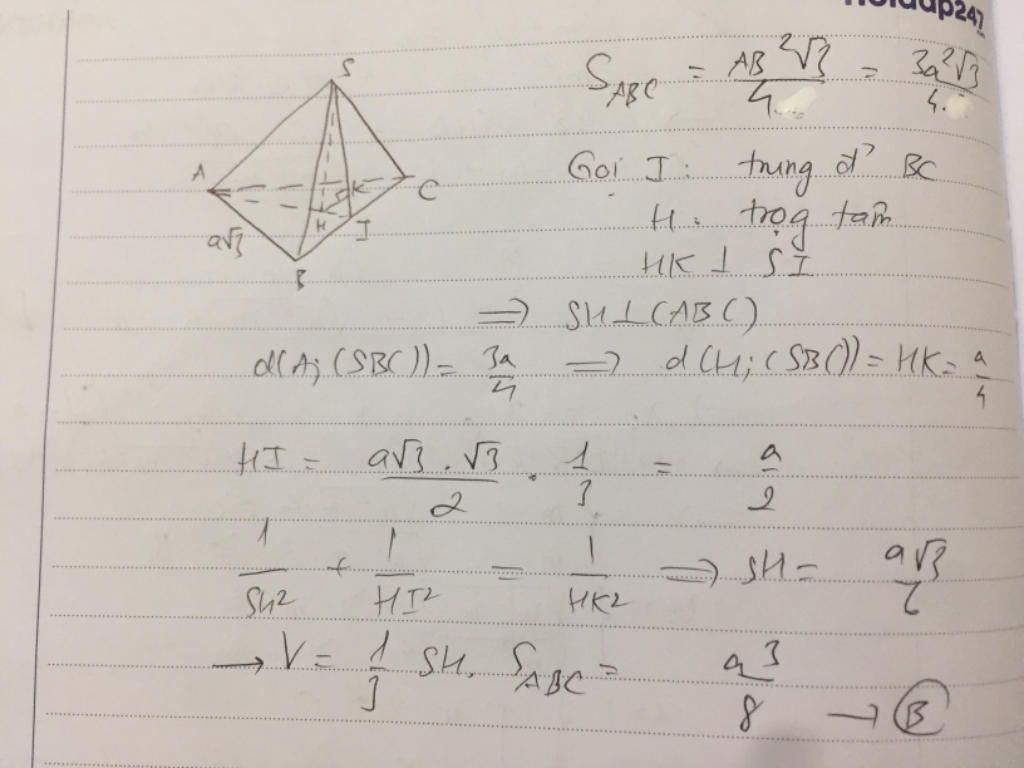 hoidap247
S
A
K
C
H
I
a√3
B
S_ABC = AB²√3/4 = 3a²√3/4.
Gọi I: trung đ² BC
H: trọg tâm
HK ⊥ SI
=> SH ⊥ (ABC)
d(A; (SBC)) = 3a/4 => d(H; (SBC)) = HK = a/4
HI = a√3.√3/2 . 1/3 = a/2
1/SH² + 1/HI² = 1/HK² => SH = a√3/6
→ V = 1/3 SH. S_ABC = a³/8 → B